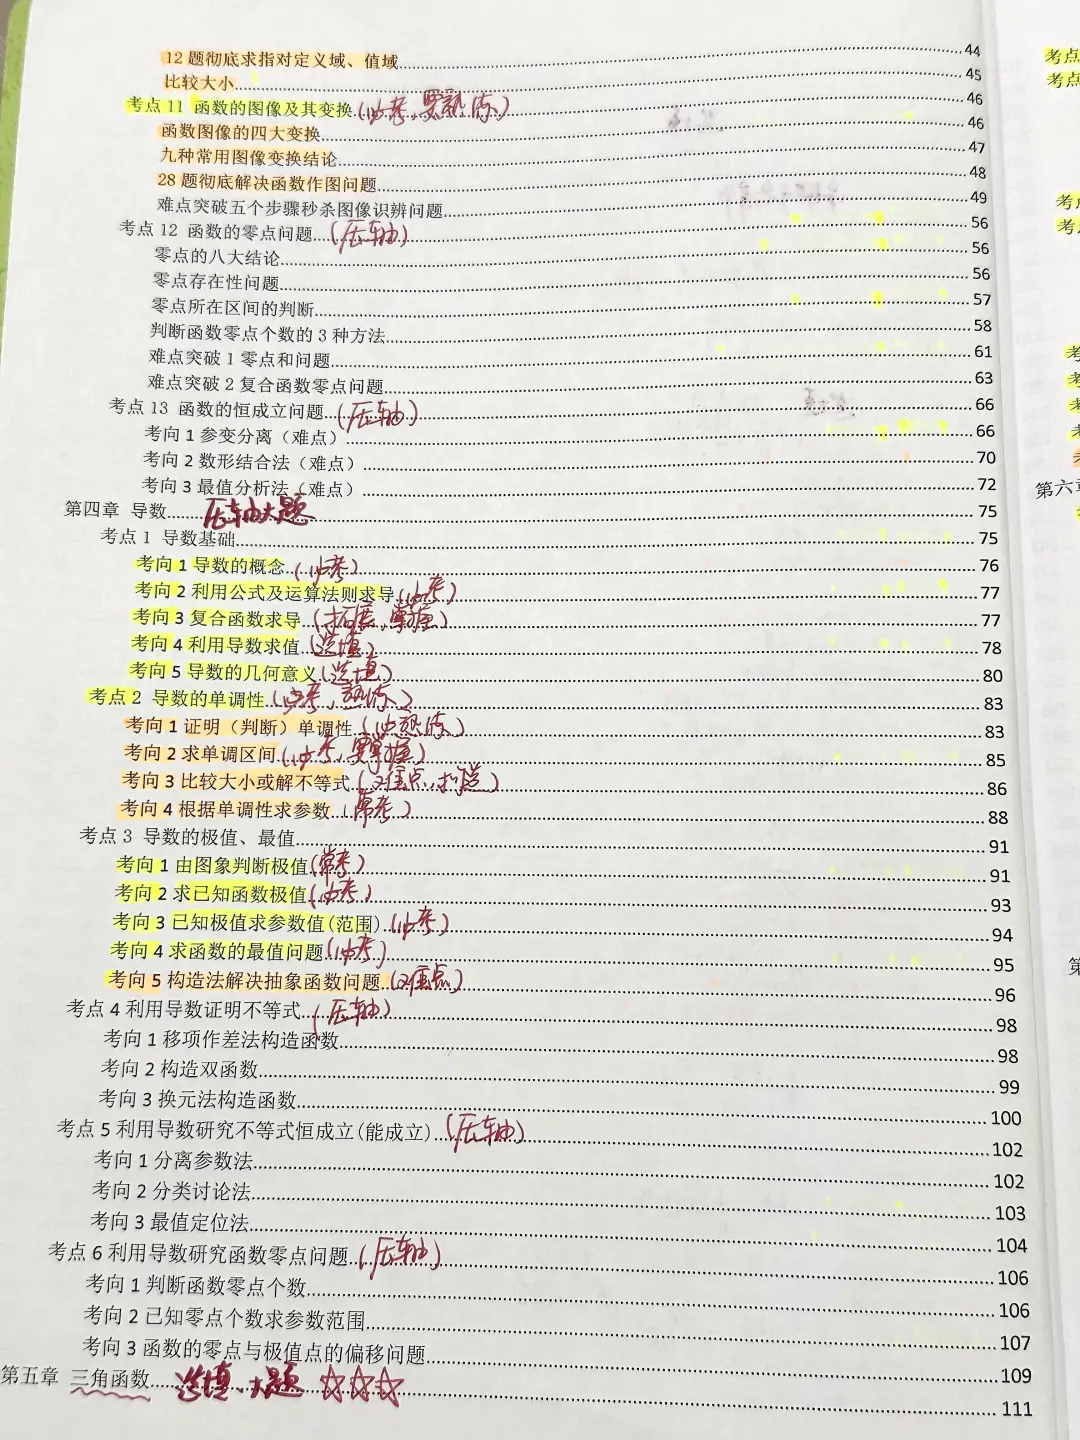 12 题彻底求指对定义域、值域........44
比较大小........45
考点 11 函数的图像及其变换(必考，要熟练)........46
函数图像的四大变换........46
九种常用图像变换结论........47
28 题彻底解决函数作图问题........48
难点突破五个步骤秒杀图像识辨问题........49
考点 12 函数的零点问题(压轴)........56
零点的八大结论........56
零点存在性问题........56
零点所在区间的判断........57
判断函数零点个数的 3 种方法........58
难点突破 1 零点和问题........61
难点突破 2 复合函数零点问题........63
考点 13 函数的恒成立问题(压轴)........66
考向 1 参变分离（难点）........66
考向 2 数形结合法（难点）........70
考向 3 最值分析法（难点）........72
第四章 导数 压轴大题........75
考点 1 导数基础........75
考向 1 导数的概念(必考)........76
考向 2 利用公式及运算法则求导(必考)........77
考向 3 复合函数求导(拓展，掌握)........77
考向 4 利用导数求值(选填)........78
考向 5 导数的几何意义(选填)........80
考点 2 导数的单调性(必考，熟练)........83
考向 1 证明（判断）单调性(必熟练)........83
考向 2 求单调区间(必考，要掌握)........85
考向 3 比较大小或解不等式(难点，)........86
考向 4 根据单调性求参数(常考)........88
考点 3 导数的极值、最值........91
考向 1 由图象判断极值(常考)........91
考向 2 求已知函数极值(必考)........93
考向 3 已知极值求参数值(范围)(必考)........94
考向 4 求函数的最值问题(必考)........95
考向 5 构造法解决抽象函数问题(难点)........96
考点 4 利用导数证明不等式(压轴)........98
考向 1 移项作差法构造函数........98
考向 2 构造双函数........99
考向 3 换元法构造函数........100
考点 5 利用导数研究不等式恒成立(能成立)(压轴)........102
考向 1 分离参数法........102
考向 2 分类讨论法........103
考向 3 最值定位法........104
考点 6 利用导数研究函数零点问题(压轴)........106
考向 1 判断函数零点个数........106
考向 2 已知零点个数求参数范围........107
考向 3 函数的零点与极值点的偏移问题........109
第五章 三角函数 选填、大题 ☆☆☆........111
考点
考点
考
第六章
第